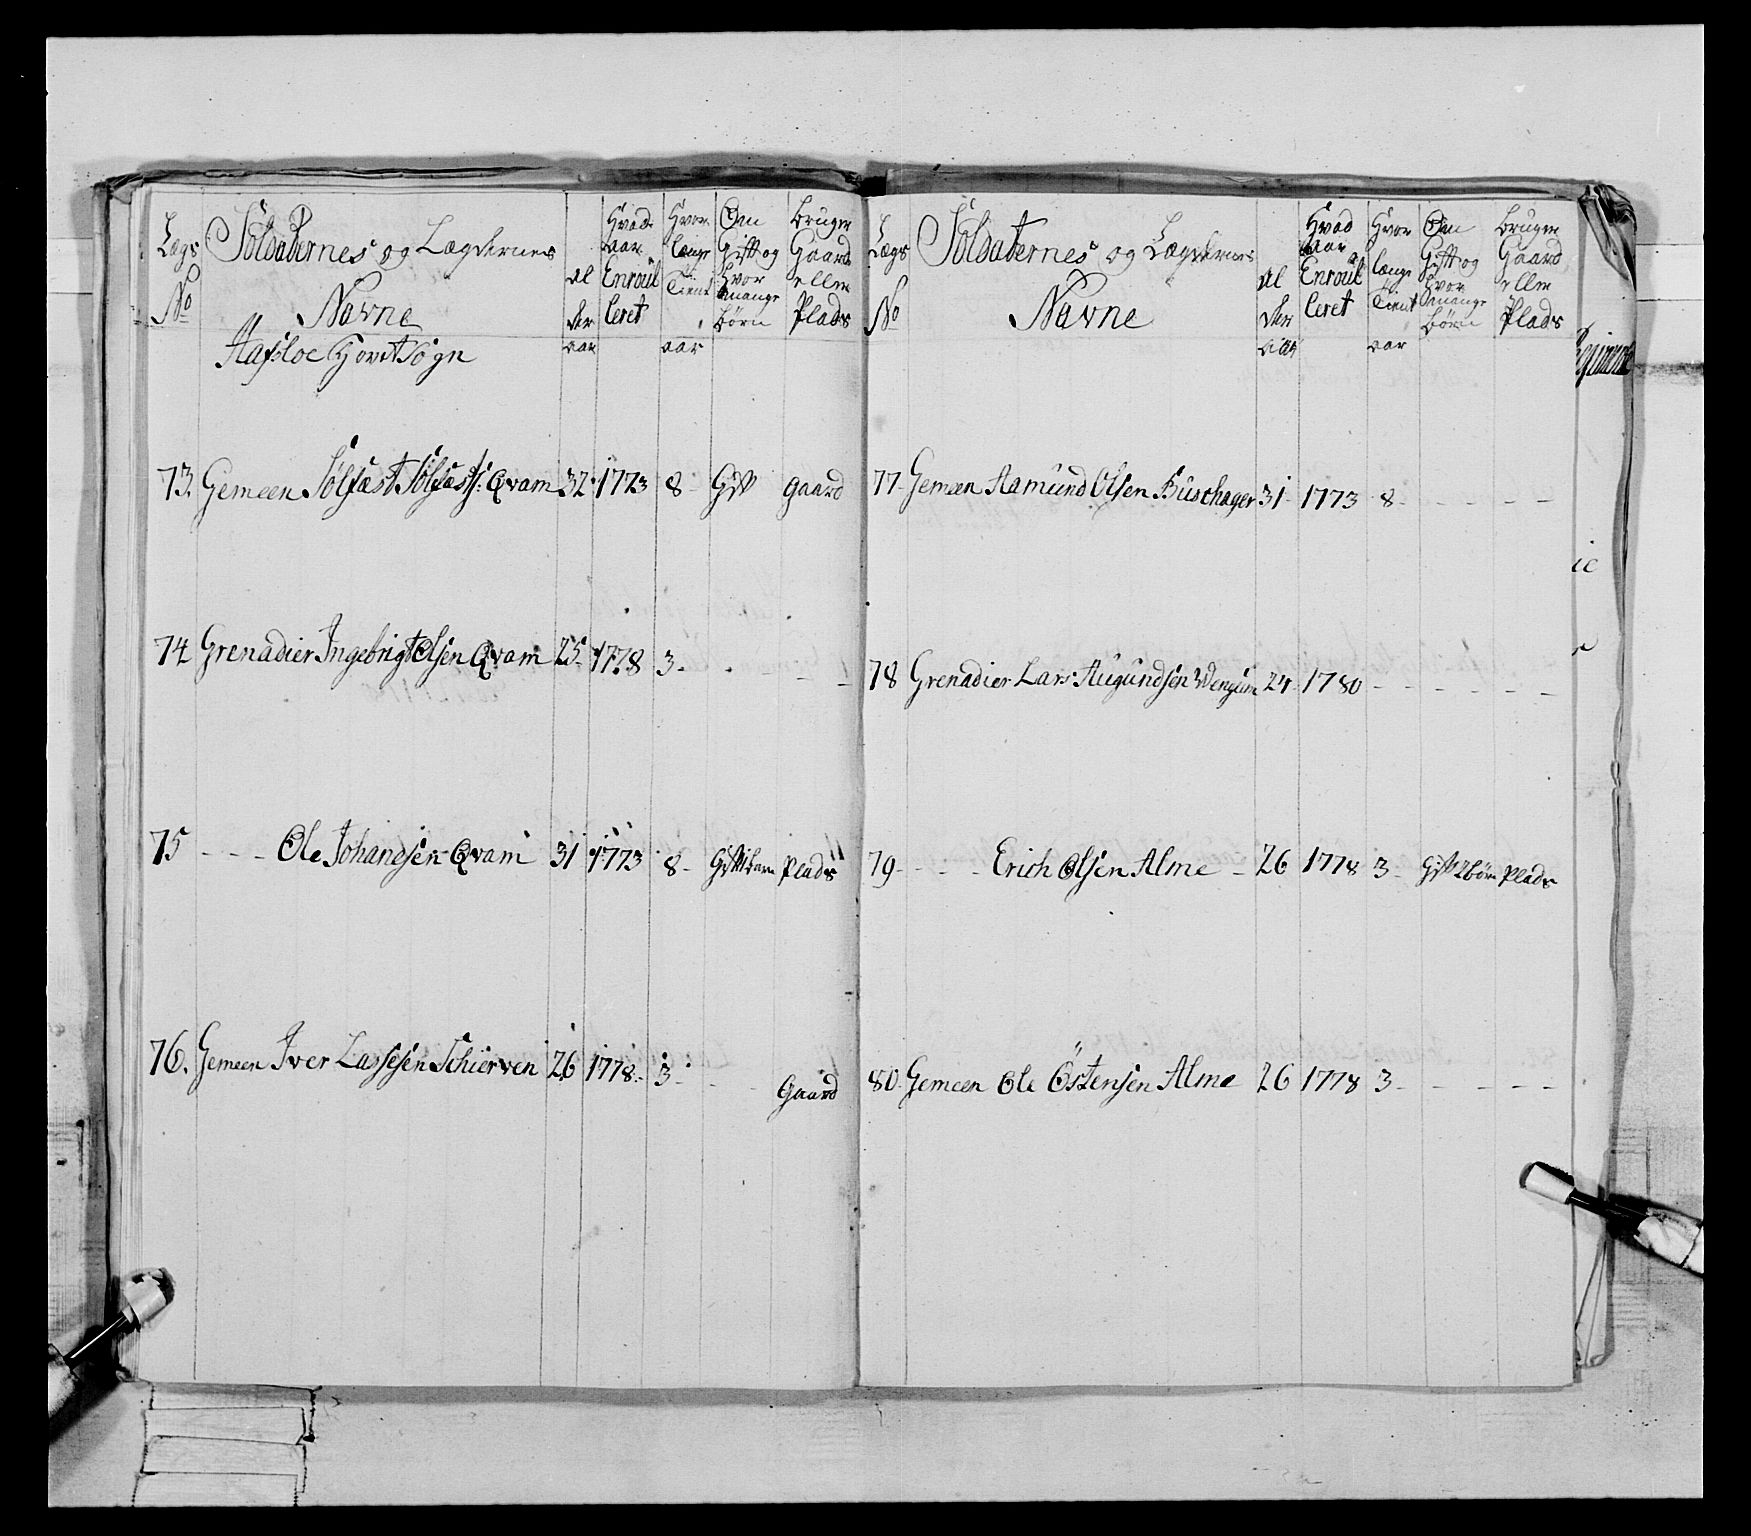 Lægs
No
Soldaternes og Lægdernes
Navne
Al
der
aar
Hvad
aar
Enroul
leret
Hvor
længe
Tient
aar
Om
Gift og
hvor
mange
børn
bruger
Gaard
eller
Plads
Hovet Sogn
73. Gemeen Sølfæst Sølfæsts: Qvam 32 1773 8 - Gift gaard
74 Grenadier Ingebrigt Olsen Qvam 25 1778 3 - - - -
75 - - - Ole Johandsen Qvam 31 1773 8 - Gift 1 barn Plads
76. Gemeen Iver Lassesen Schierven 26 1778 3 - - - Gaard
Lægs
No
Soldaternes og Lægdernes
Navne
Al
der
aar
Hvad
aar
Enroul
leret
Hvor
længe
Tient
aar
Om
Gift og
hvor
mange
børn
bruger
Gaard
eller
Plads
77 Gemeen Aamund Olsen Buschager 31 1773 8 - - - - -
78 Grenadier Lars: Augundsen Wengum 24 1780 - - - - - -
79 - - - - Erich Olsen Alme - 26 1778 3 - Gift 2 børn Plads
80 Gemeen Ole Östensen Alme 26 1778 3 - - - - -